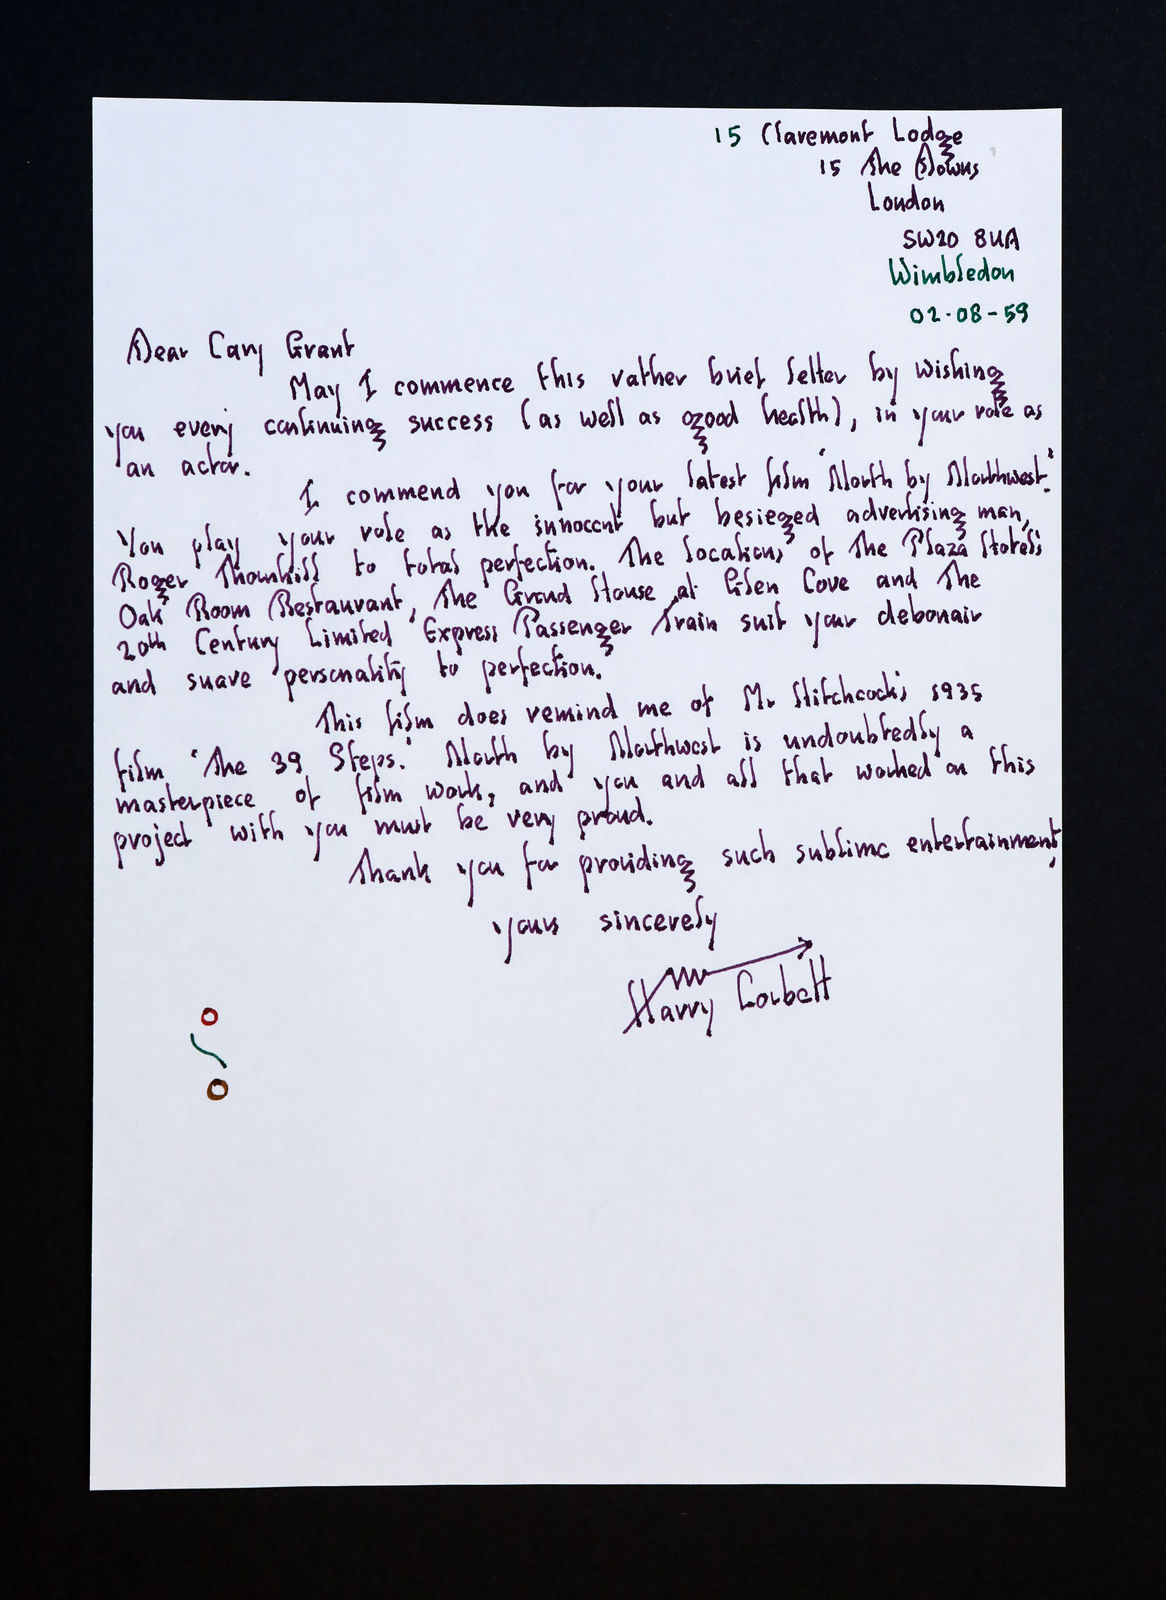 15 Claremont Lodge
15 The Downs
London
SW20 8UA
Wimbledon
02-08-59
Dear Cary Grant
May I commence this rather brief letter by wishing
you every continuing success (as well as good health), in your role as
an actor.
I commend you for your latest film 'North by Northwest.'
You play your role as the innocent but besieged advertising man,
Roger Thornhill to total perfection. The locations of The Plaza Hotel's
Oak Room Restaurant, The Grand House at Glen Cove and The
20th Century Limited Express Passenger Train suit your debonair
and suave personality to perfection.
This film does remind me of Mr Hitchcock's 1935
film 'The 39 Steps.' North by Northwest is undoubtedly a
masterpiece of film work, and you and all that worked on this
project with you must be very proud.
Thank you for providing such sublime entertainment,
yours sincerely
Harry Corbett